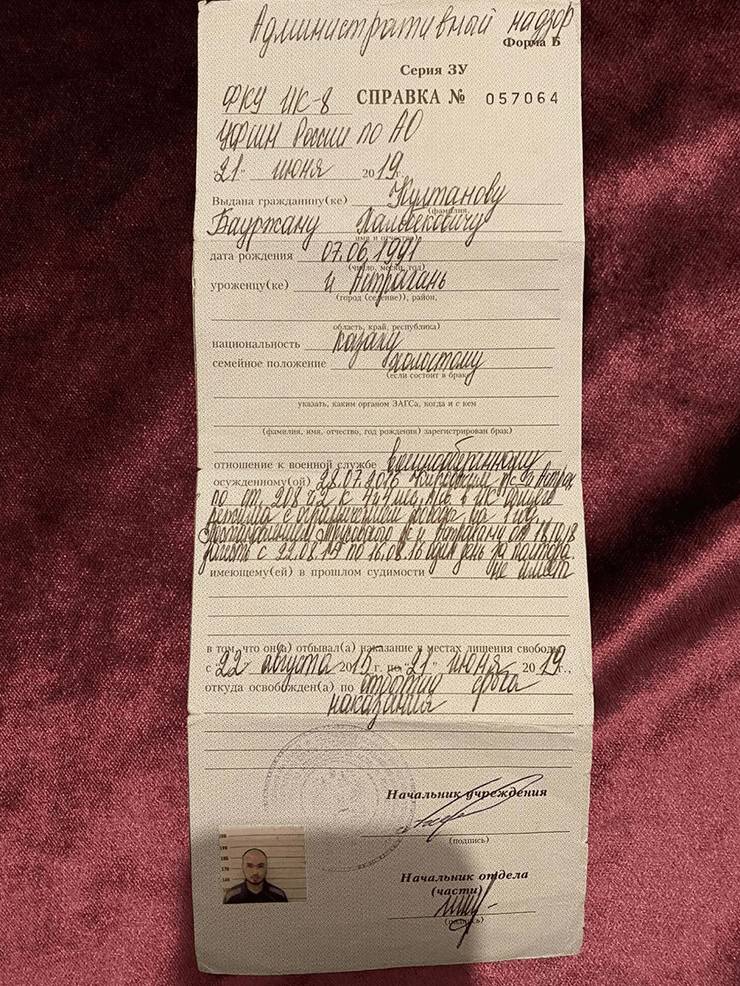 Административный надзор
Форма Б
Серия ЗУ
ФКУ ИК-8 СПРАВКА № 057064
УФСИН России по АО
"21" июня 2019 г.
Выдана гражданину(ке) Култанову
(фамилия,
Бауржану Халыбековичу
имя и отчество)
дата рождения 07.06.1991
(число, месяц, год)
уроженцу(ке) г. Астрахань
(город (селение)), район,
область, край, республика)
национальность казаху
семейное положение холостому
(если состоит в браке,
указать, каким органом ЗАГСа, когда и с кем
(фамилия, имя, отчество, год рождения) зарегистрирован брак)
отношение к военной службе военнообязанному
осужденному(ой) 28.07.2016
по ст. 208 ч.2 к
режима с ограничением свободы на 1 год
от 18.10.18
с 22.08.15 по 16.08.16 один день за полтора
имеющему(ей) в прошлом судимости не имеет
в том, что он(а) отбывал(а) наказание в местах лишения свободы
с "22" августа 2015 г. по "21" июня 2019 г.,
откуда освобожден(а) по отбытии срока
наказания
Начальник учреждения
(подпись)
Начальник отдела
(части)
(подпись)